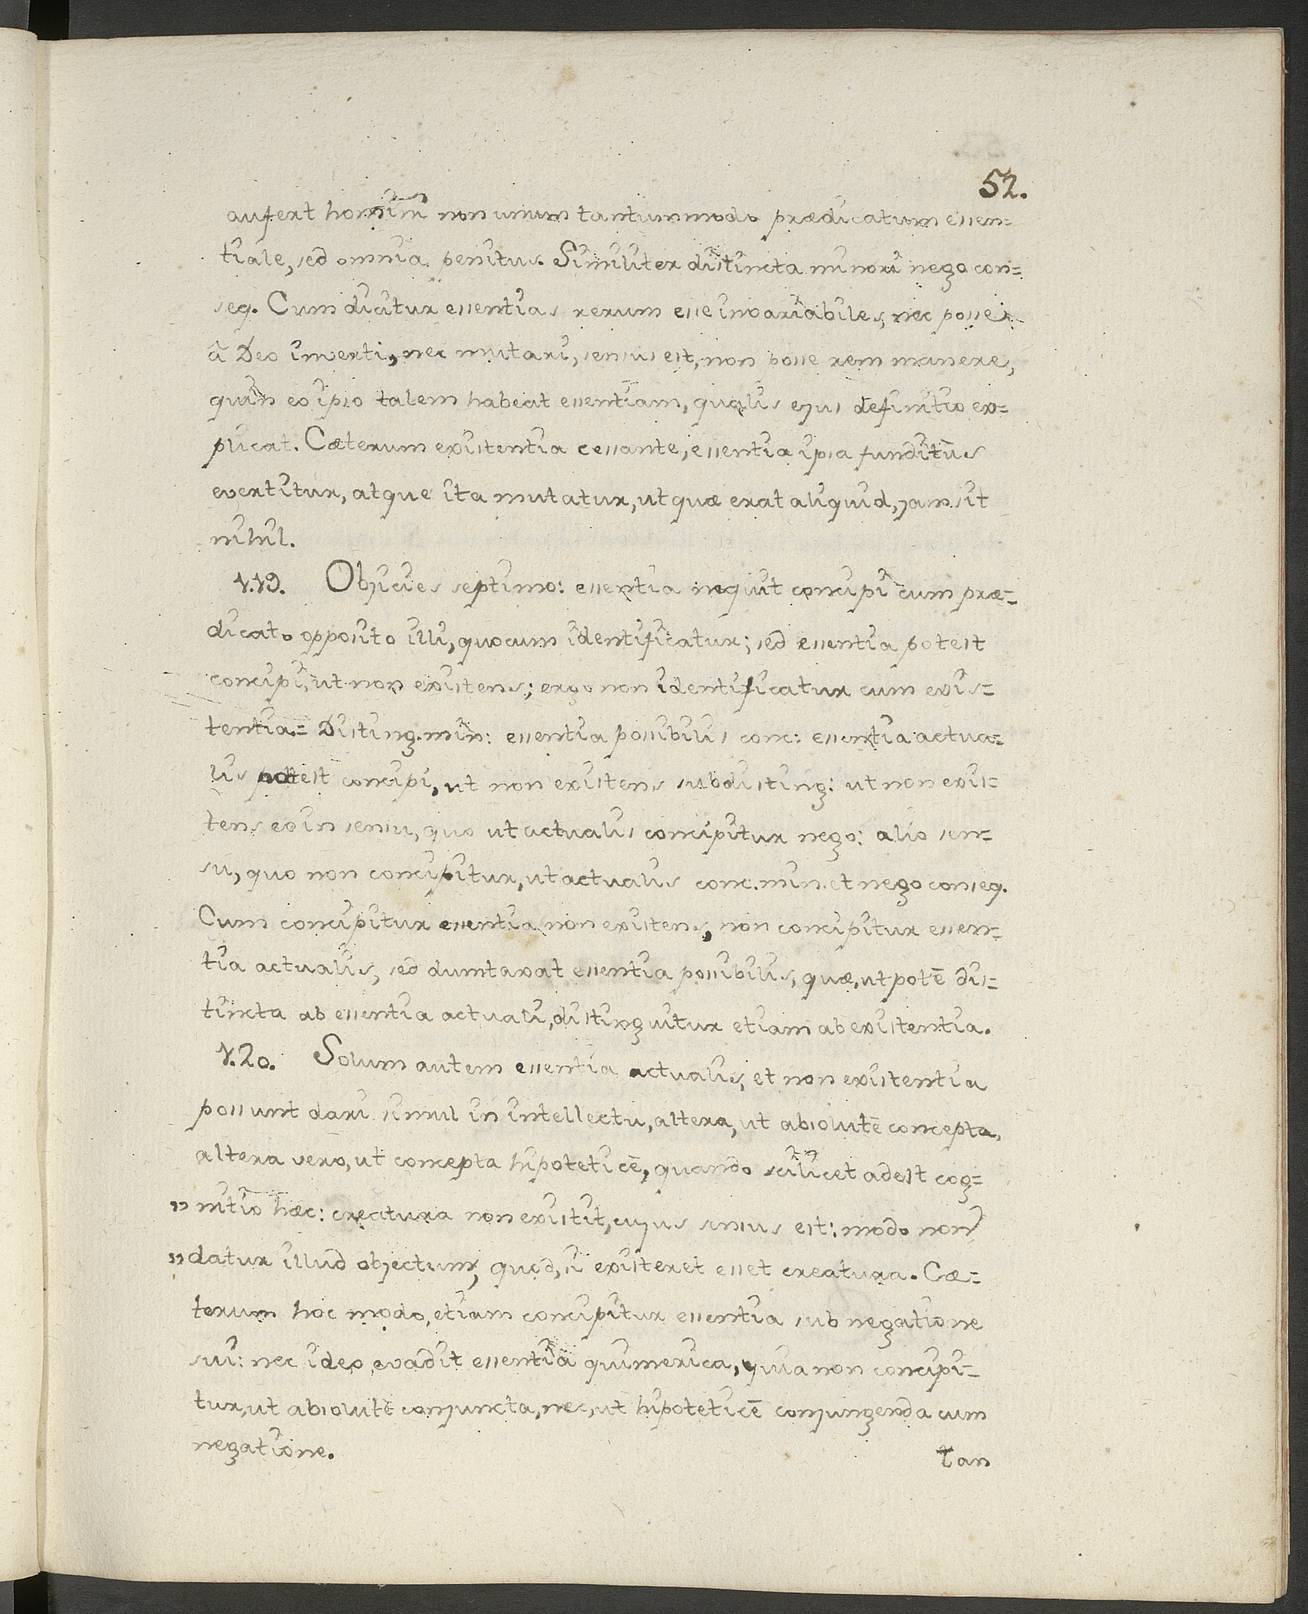 52.
aufert homini non unum tantummodo prædicatum essen=
tiale, sed omnia penitus. Similiter distincta minori nego con=
seq. Cum dicitur essentias rerum esse invariabiles, nec posse
à Deo inverti, nec mutari, sensus est, non posse rem manere,
quin eo ipso talem habeat essentiam, qualis ejus definitio ex=
plicat. Cæterum existentia cessante, essentia ipsa funditùs
evertitur, atque ita mutatur, ut quæ erat aliquid, jam sit
nihil.
1.19. Objicies septimo: essentia nequit concipi cum præ=
dicato opposito illi, quocum identificatur; sed essentia potest
concipi, ut non existens; ergo non identificatur cum exis=
tentia.= Disting. min: essentia possibilis conc: essentia actua=
lis potest concipi, ut non existens subdisting: ut non exis=
tens eo in sensu, quo ut actualis concipitur nego: alio sen=
su, quo non concipitur, ut actualis conc. min. et nego conseq.
Cum concipitur essentia non existens, non concipitur essen=
tia actualis, sed dumtaxat essentia possibilis, quæ, ut potè dis=
tincta ab essentia actuali, distinguitur etiam ab existentia.
1.20. Solum autem essentia actualis, et non existentia
possunt dari simul in intellectu, altera, ut absolutè concepta,
altera vero, ut concepta hipoteticè, quando scilicet adest cog=
" nitio hæc: creatura non existit, cujus sensus est: modo non
" datur illud objectum, quod, si existeret esset creatura. Cæ=
terum hoc modo, etiam concipitur essentia sub negatione
sui: nec ideo evadit essentia quimerica, quia non concipi=
tur, ut absolutè conjuncta, nec, ut hipoteticè conjungenda cum
negatione.
Tan